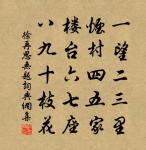 一望二三里
煙村四五家
楼台六七座
八九十枝花
徐再思無題詞典網集